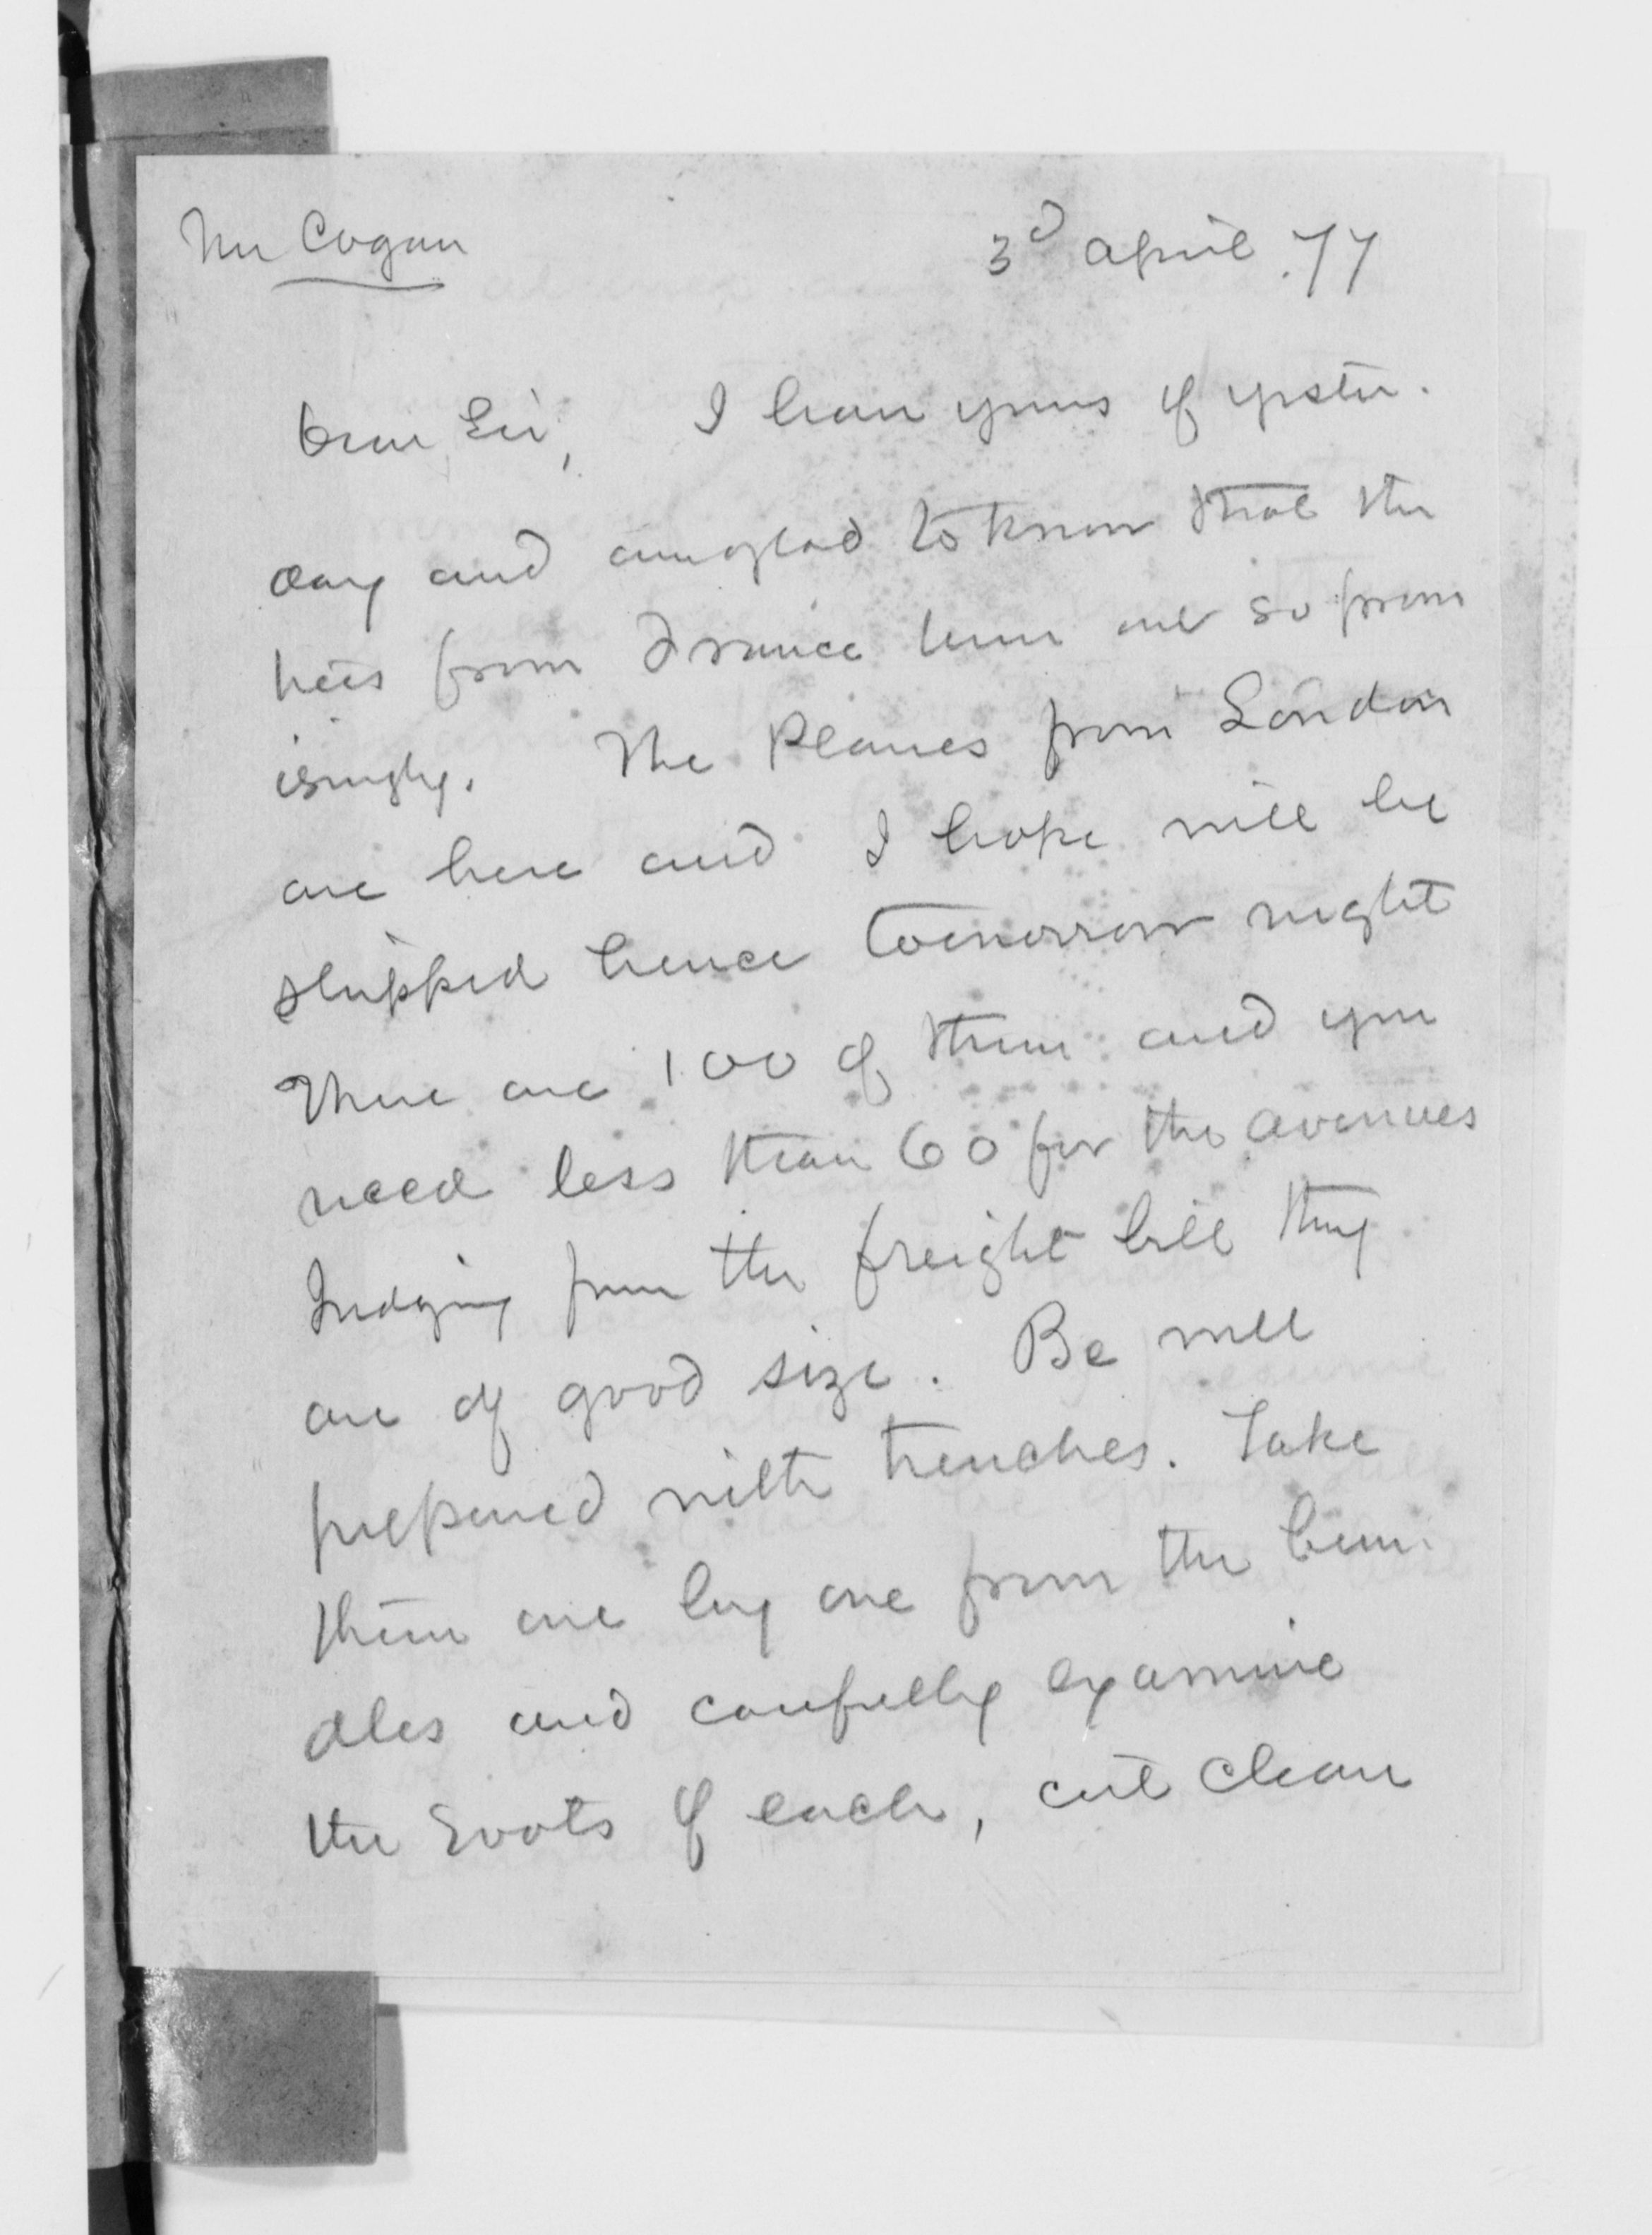 Mr Cogan
3d April .77
Dear Sir, I have yours of yester-
day and am glad to know that the
trees from France turn out so prom
isingly. The Planes from London
are here and I hope will be
shipped hence tomorrow night
There are 100 of them and you
need less than 60 for the avenues
Judging from the freight bill they
are of good size. Be well
prepared with trenches. Take
them one by one from the bun-
dles and carefully examine
the roots of each, cut clean